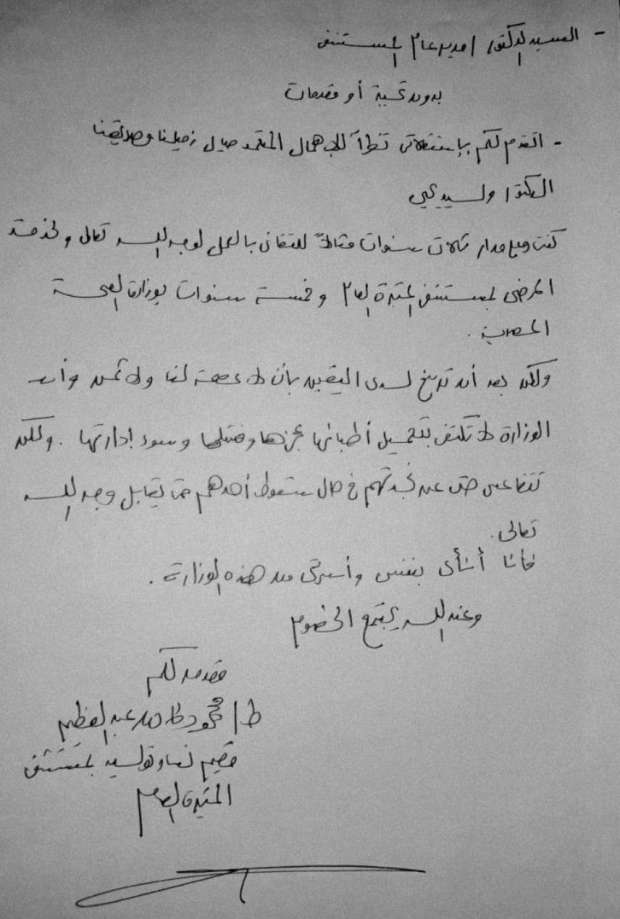 - السيد الدكتور / مدير عام المستشفى
بدون تحية أو مقدمات
- أتقدم لكم بإستقالتى نظراً للإهمال المتعمد حيال زميلنا وصديقنا
الدكتور / وليد يحيى
كنت وعلى مدار ثلاث سنوات مثالاً للتفانى بالعمل لوجه الله تعالى ولخدمة
المرضى بمستشفى المنيرة العام وخمسة سنوات بوزارة الصحة
المصرية .
ولكن بعد أن ترسخ لدى اليقين بأن لا عصمة لنا ولا ثمن وأن
الوزارة لا تكتفى بتحميل أطبائها عجزها وفشلها وسوء إدارتها . ولكن
تتقاعس حتى عن نجدتهم فى حال سقوط أحدهم حتى يقابل وجه الله
تعالى .
فأنا أنأى بنفسى وأستبرئ من هذه الوزارة .
وعند الله يجتمع الخصوم
مقدمه لكم
ط / محمود طه عبد العظيم
مقيم نساء وتوليد بمستشفى
المنيرة العام